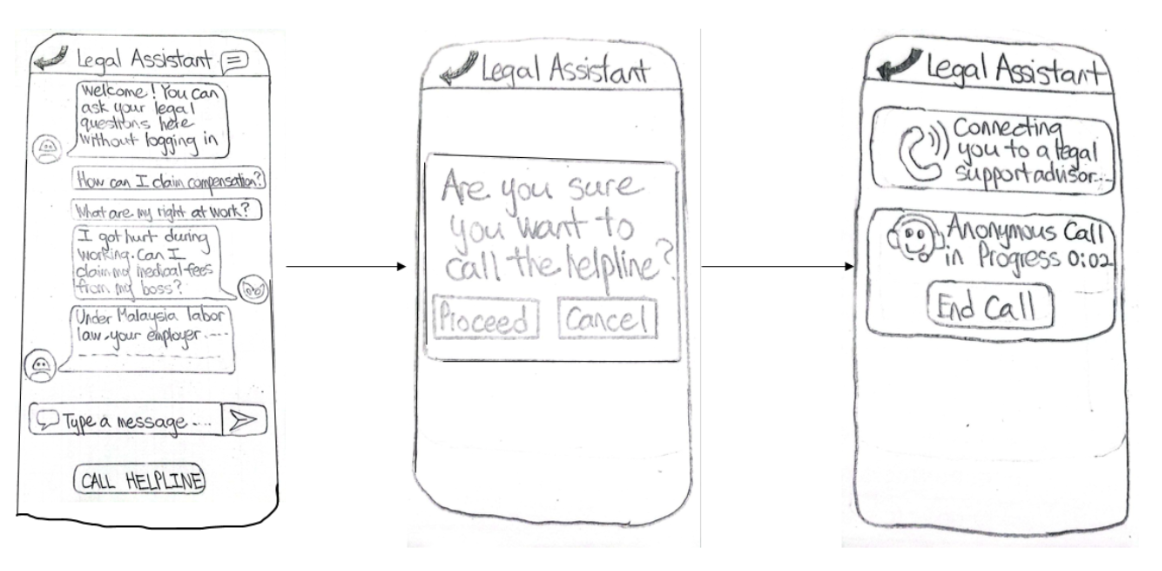 Legal Assistant
Welcome! You can
ask your legal
questions here
without logging in
How can I claim compensation?
What are my right at work?
I got hurt during
working. Can I
claim my medical fees
from my boss?
Under Malaysia labor
law, your employer ----
Type a message ....
CALL HELPLINE
Legal Assistant
Are you sure
you want to
call the helpline?
Proceed
Cancel
Legal Assistant
Connecting
you to a legal
support advisor...
Anonymous Call
in Progress 0:02
End Call